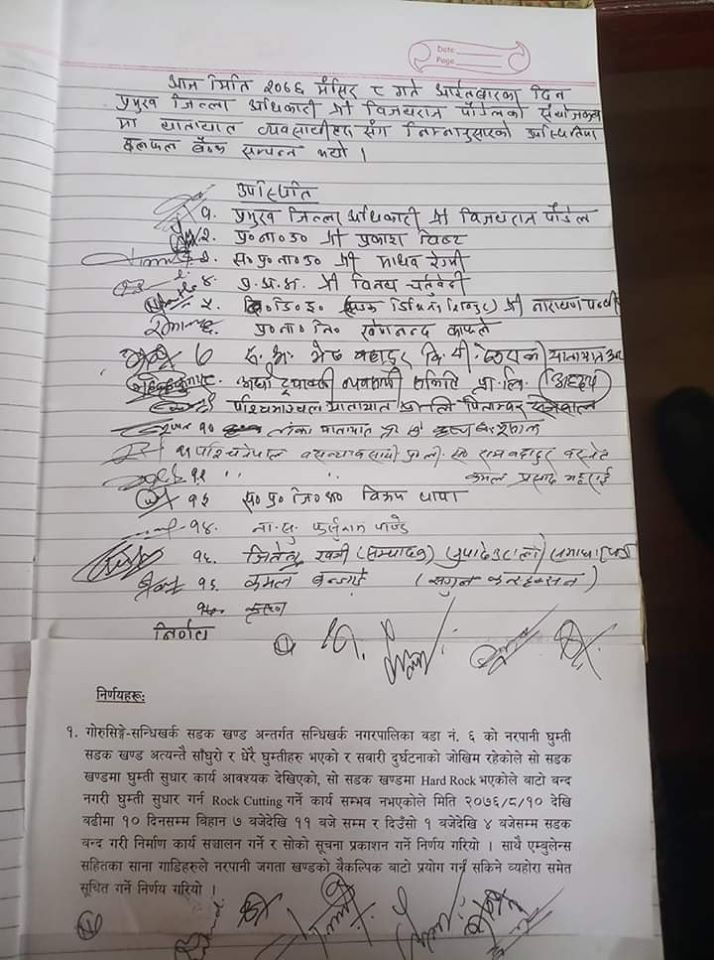 Date
Page
आज मिति २०७६ मंसिर ८ गते आईतबारका दिन
प्रमुख जिल्ला अधिकारी श्री विजयराज पौडेलको संयोजकत्व
मा यातायात व्यवसायीहरु संग निम्नानुसारको उपस्थितिमा
छलफल बैठक सम्पन्न भयो ।
उपस्थिति
१. प्रमुख जिल्ला अधिकारी श्री विजयराज पौडेल
२. प्र०ना०उ० श्री प्रकाश बिष्ट
३. स०प्र०ना०उ० श्री माधव रेग्मी
४. प्र.अ.अ. श्री विनय चतुर्वेदी
५. सि०डि०इ० (सडक डिभिजन) श्री नारायण
६. प्र०ना०नि० काफ्ले
७ बहादुर वि.सी. यातायात
व्यवसायी समिति प्रा.लि. (अध्यक्ष)
पश्चिमाञ्चल यातायात प्रा.लि पिताम्बर
१० लंका यातायात
११ पश्चिम नेपाल बस व्यवसायी प्रा.ली. राम बहादुर बस्नेत
१२ " " कमल प्रसाद भट्टराई
१३ स०प्र०जि०अ० विक्रम थापा
१४. ना.सु. पाण्डे
१५. जितेन्द्र (सम्पादक)
१६. कमल (सगुन कन्स्ट्रक्सन)
१७. कृष्ण
निर्णय
निर्णयहरू:
१. गोरुसिङ्गे-सन्धिखर्क सडक खण्ड अन्तर्गत सन्धिखर्क नगरपालिका वडा नं. ६ को नरपानी घुम्ती
सडक खण्ड अत्यन्तै साँघुरो र धेरै घुम्तीहरु भएको र सवारी दुर्घटनाको जोखिम रहेकोले सो सडक
खण्डमा घुम्ती सुधार कार्य आवश्यक देखिएको, सो सडक खण्डमा Hard Rock भएकोले बाटो बन्द
नगरी घुम्ती सुधार गर्न Rock Cutting गर्ने कार्य सम्भव नभएकोले मिति २०७६/८/१० देखि
बढीमा १० दिनसम्म बिहान ७ बजेदेखि ११ बजे सम्म र दिउँसो १ बजेदेखि ४ बजेसम्म सडक
बन्द गरी निर्माण कार्य सञ्चालन गर्ने र सोको सूचना प्रकाशन गर्ने निर्णय गरियो । साथै एम्बुलेन्स
सहितका साना गाडिहरुले नरपानी जगता खण्डको बैकल्पिक बाटो प्रयोग गर्न सकिने व्यहोरा समेत
सूचित गर्ने निर्णय गरियो ।